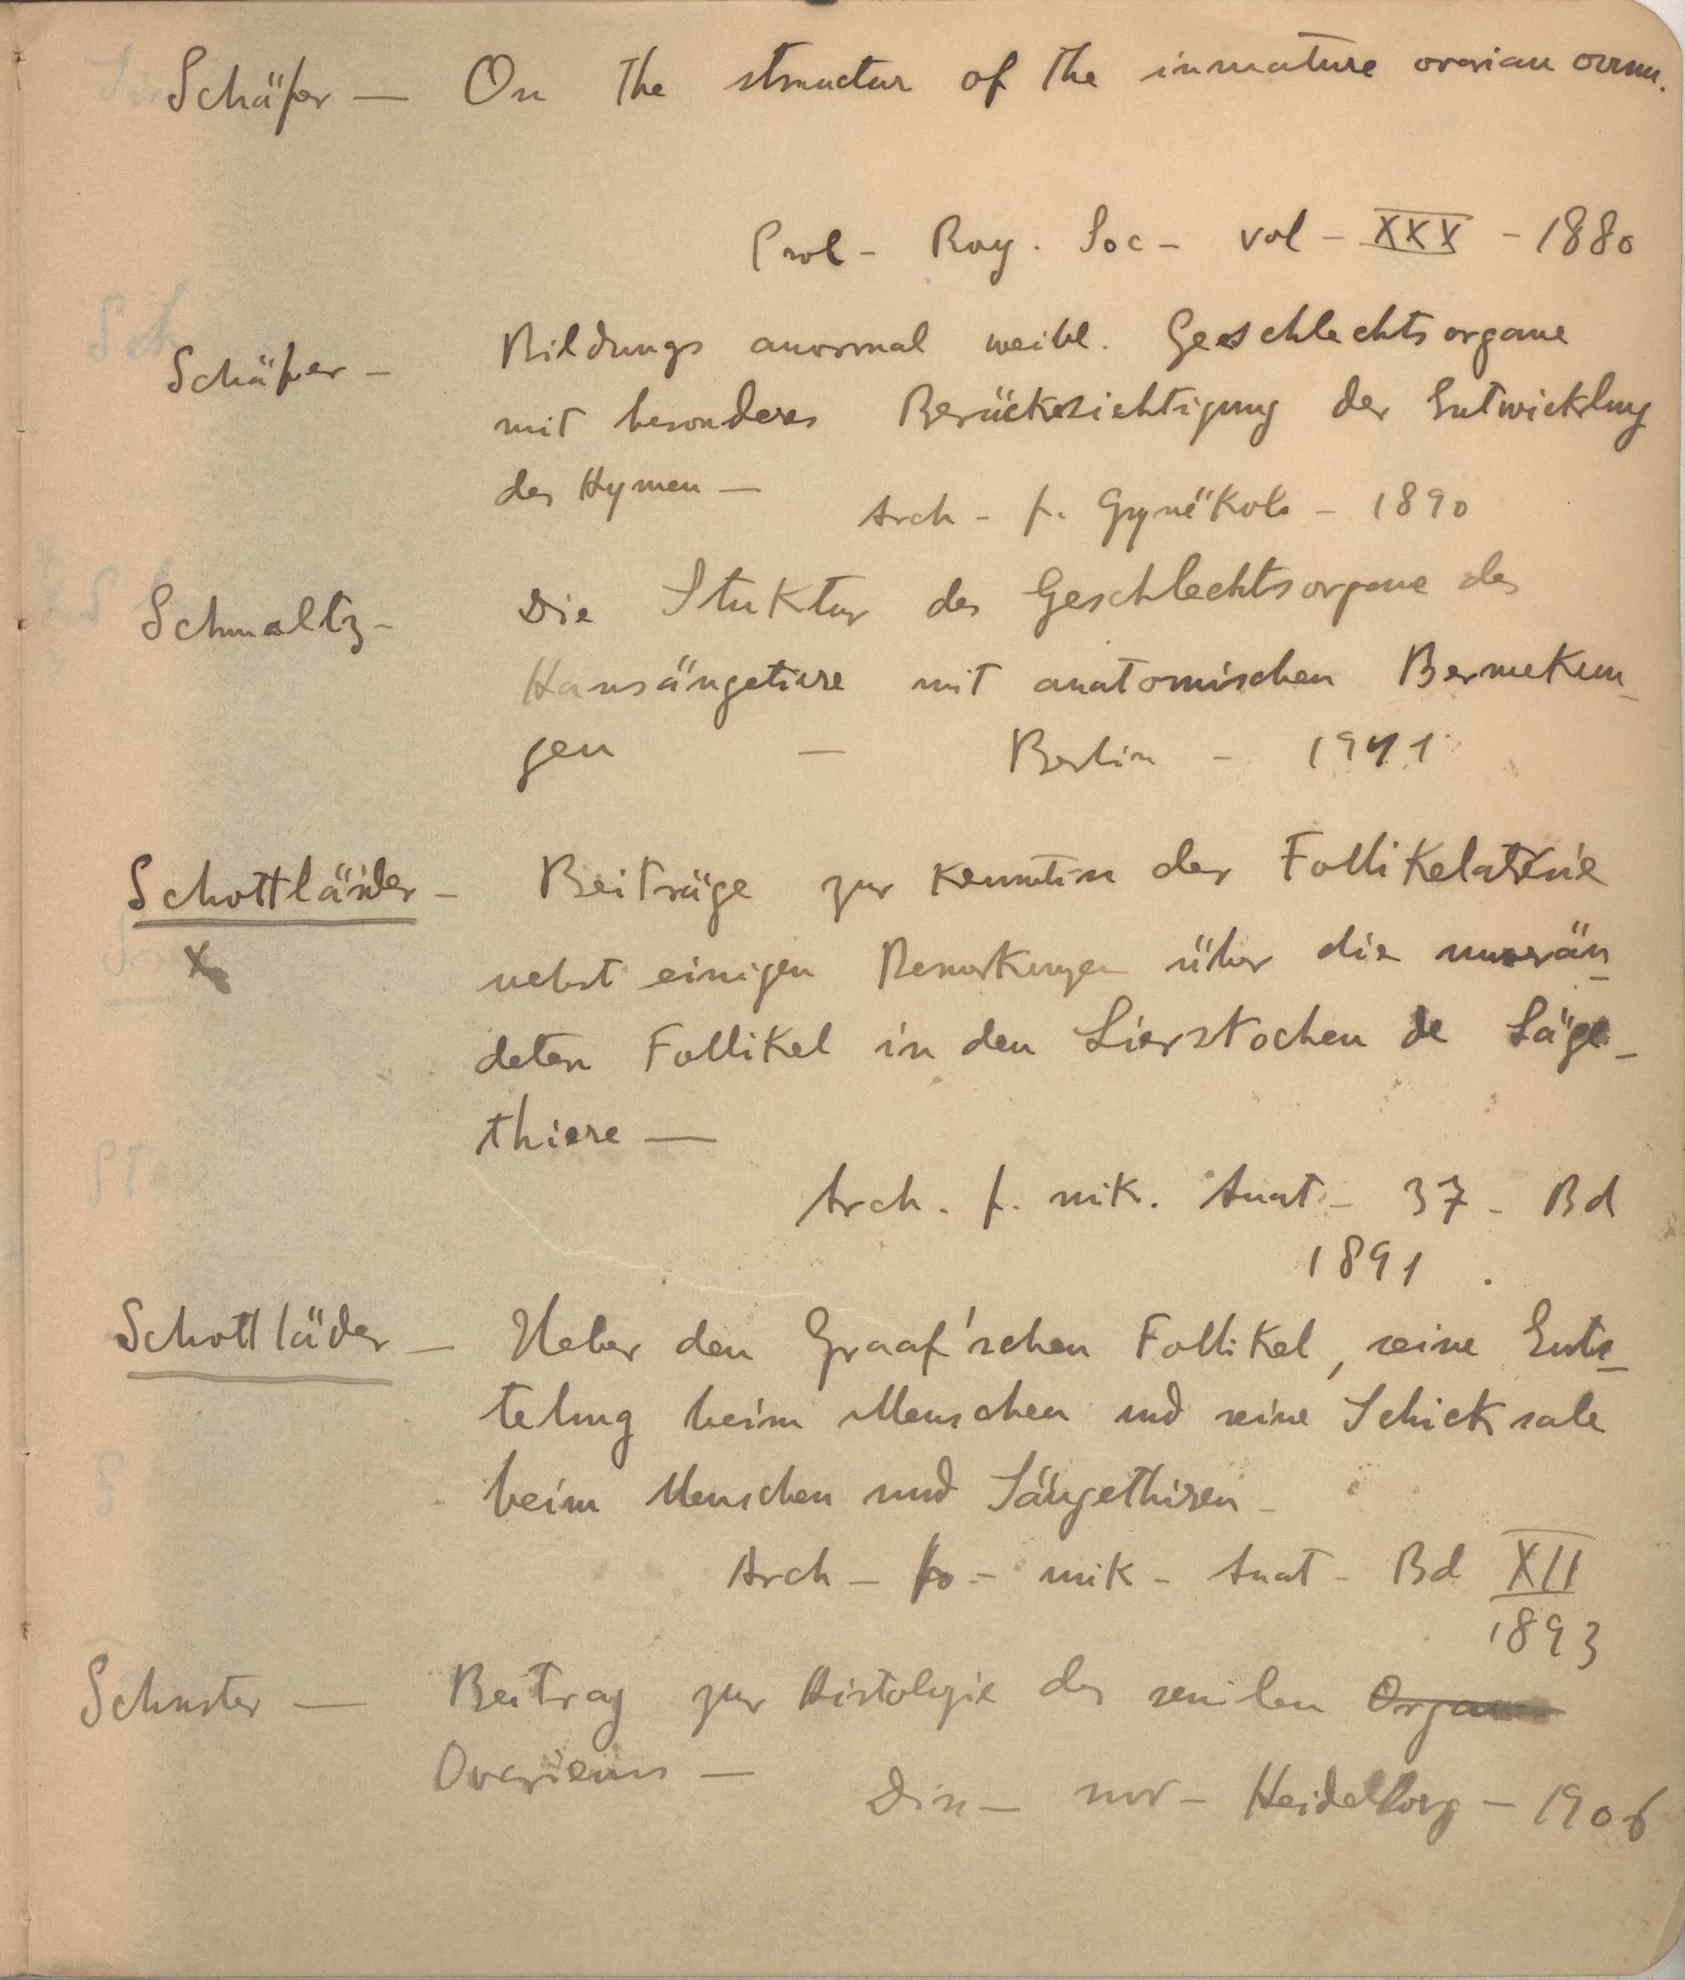 Schäfer — On the structur of the inmature ovarian ovum.
Prol - Roy. Soc - vol - XXX - 1880
Schäfer - Bildungs anormal weibl. Geschlechtsorgane
mit besonderes Berücksichtigung der Entwicklung
des Hymen —
Arch - f. Gynëkol. - 1890
Schmaltz - Die Stuktur des Geschlechtsorgane des
Hausäugetiere mit anatomischen Bermekun-
gen — Berlin - 1911
Schottländer - Beiträge zur Kenntin der Follikelatresie
nebst einigen Bemerkungen über die unverän-
x
deten Follikel in den Eierstochen de Säge-
thiere —
Arch. f. mik. Anat - 37 - Bd
1891.
Schottläder - Ueber den Graaf'schen Follikel, seine Ents-
telung beim Menschen und seine Schicksale
beim Menschen und Säugethiren -
Arch - f. - mik - Anat - Bd XII
1893
Schuster — Beitrag zur Histologie des senilen Organ
Ovariums —
Diss - Heidelberg - 1906